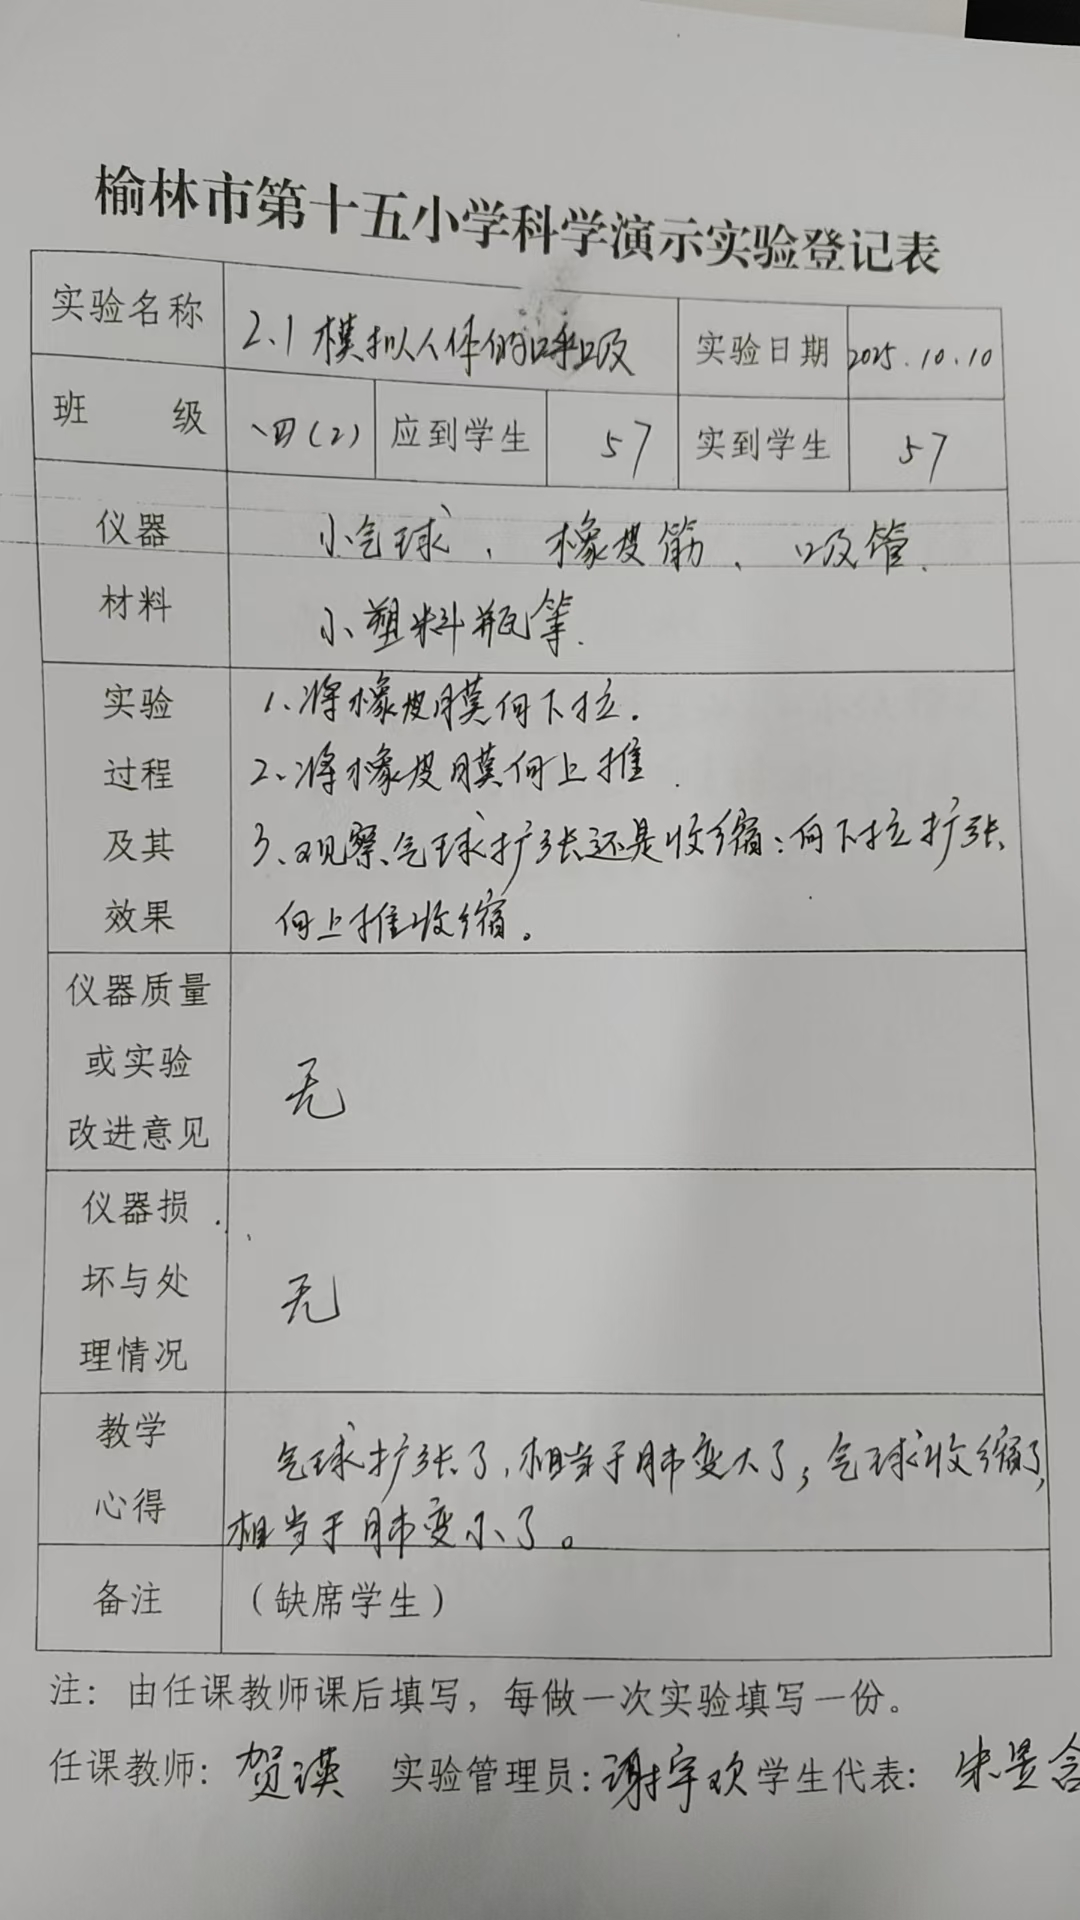 榆林市第十五小学科学演示实验登记表
实验名称 2.1 模拟人体的呼吸 实验日期 2025.10.10
班 级 四(2) 应到学生 57 实到学生 57
仪器 小气球、橡皮筋、吸管、
材料 小塑料瓶等.
实验 1、将橡皮膜向下拉.
过程 2、将橡皮膜向上推.
及其 3、观察气球扩张还是收缩:向下拉扩张、
效果 向上推收缩。
仪器质量
或实验 无
改进意见
仪器损
坏与处 无
理情况
教学 气球扩张了,相当于肺变大了;气球收缩了,
心得 相当于肺变小了。
备注 (缺席学生)
注:由任课教师课后填写,每做一次实验填写一份。
任课教师:贺瑛 实验管理员:谢宇欢 学生代表:朱昱含